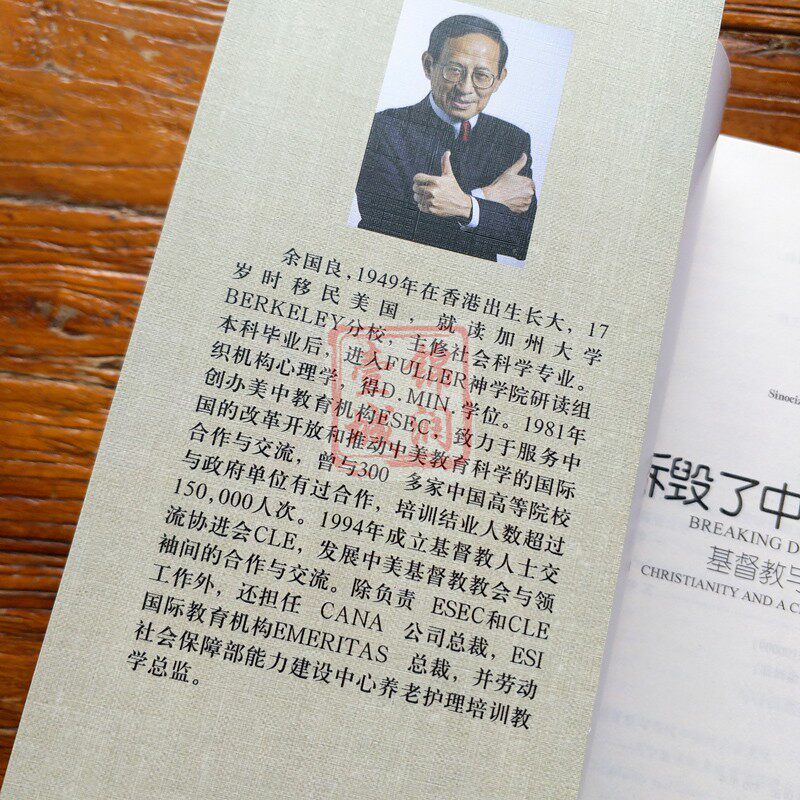 余国良,1949年在香港出生长大,17
岁时移民美国,就读加州大学
BERKELEY分校,主修社会科学专业。
本科毕业后,进入FULLER神学院研读组
织机构心理学,得D.MIN.学位。1981年
创办美中教育机构ESEC,致力于服务中
国的改革开放和推动中美教育科学的国际
合作与交流,曾与300 多家中国高等院校
与政府单位有过合作,培训结业人数超过
150,000人次。1994年成立基督教人士交
流协进会CLE,发展中美基督教教会与领
袖间的合作与交流。除负责 ESEC和CLE
工作外,还担任 CANA 公司总裁,ESI
国际教育机构EMERITAS 总裁,并劳动
社会保障部能力建设中心养老护理培训教
学总监。
Sinociz
拆毁了中
BREAKING D
基督教与
CHRISTIANITY AND A C